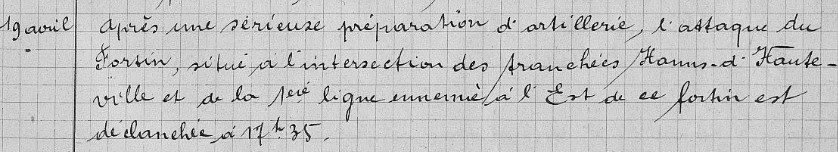 19 avril après une sérieuse préparation d'artillerie, l'attaque du
Fortin, situé à l'intersection des tranchées Hanus-d'Haute-
ville et de la 1ere ligne ennemie à l'Est de ce fortin est
déclanchée à 17h35.